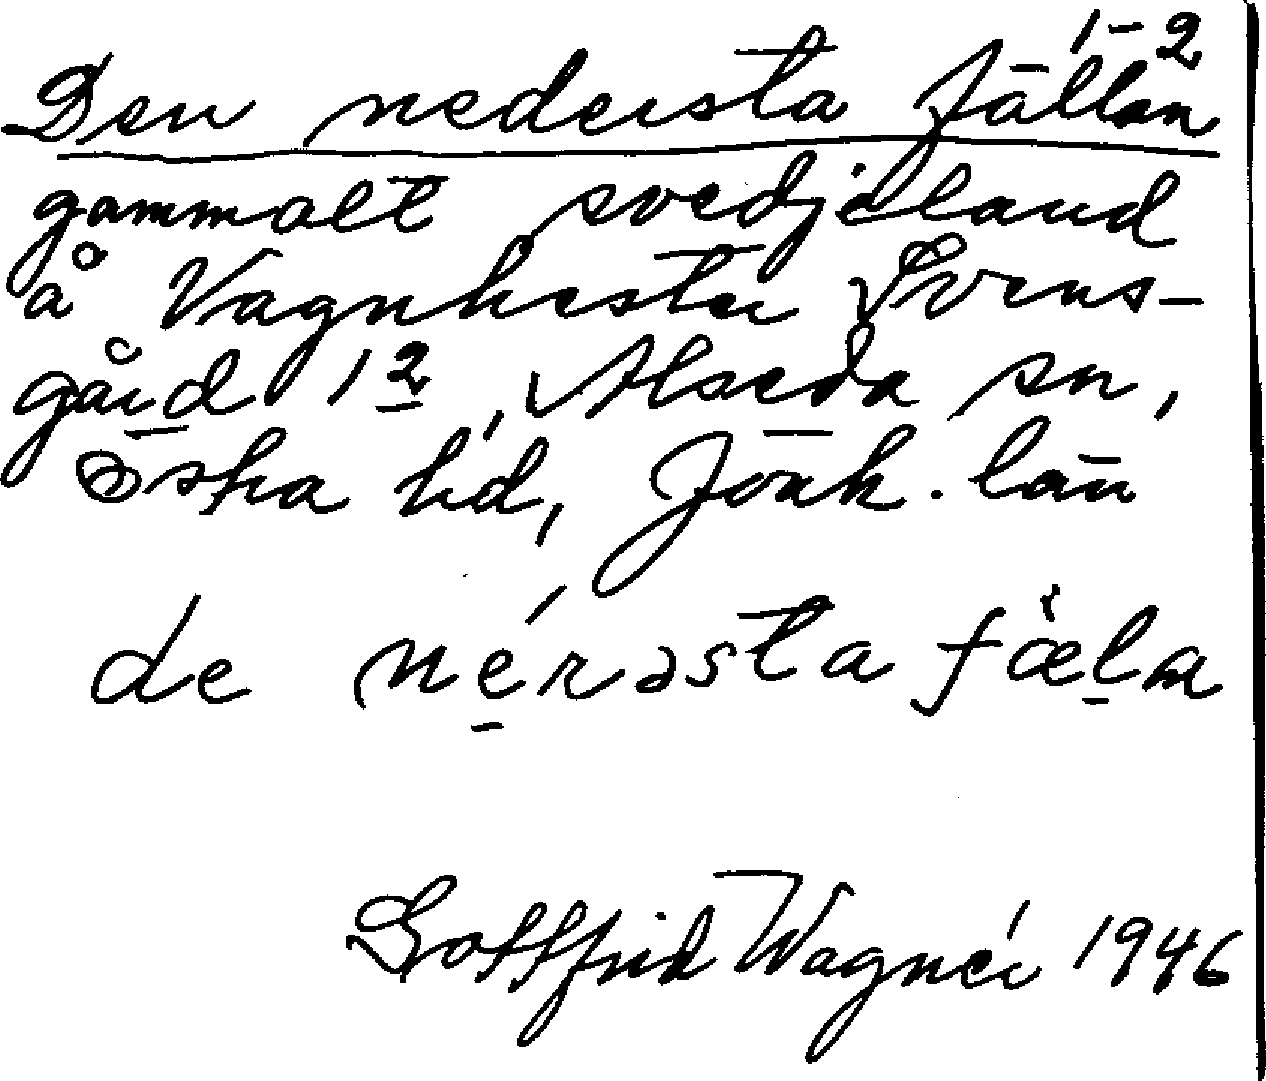 1-2
Den nedersta fällan
gammalt svedjeland
å Vagnhester Svens-
gård 1 2, Alseda sn,
Östra hd, Jönk. län
de nérəsta fälla
Gottfrid Wagnér 1946